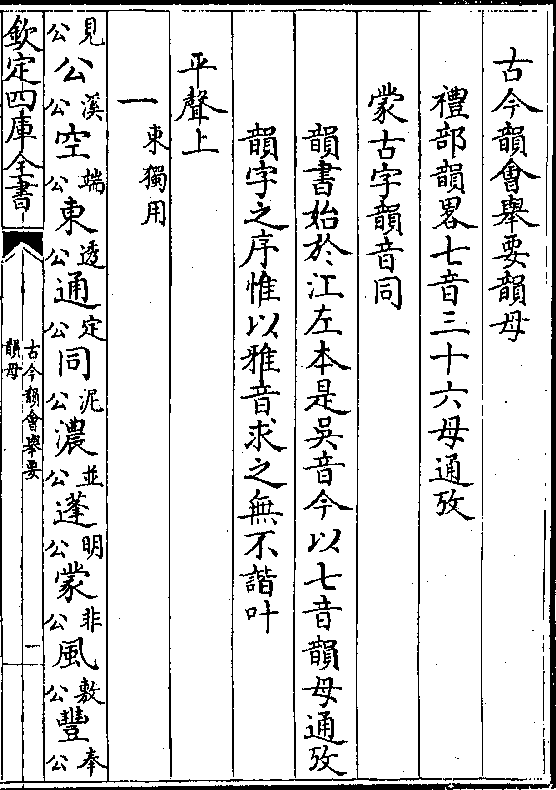 古今韻會舉要韻母
禮部韻畧七音三十六母通攷
蒙古字韻音同
韻書始於江左本是吳音今以七音韻母通攷
韻字之序惟以雅音求之無不諧叶
平聲上
一 東獨用
見公公溪公空端公東透公通定公同泥公濃並公蓬明公蒙非公風敷公豐奉公
欽定四庫全書
古今韻會舉要
韻母
一